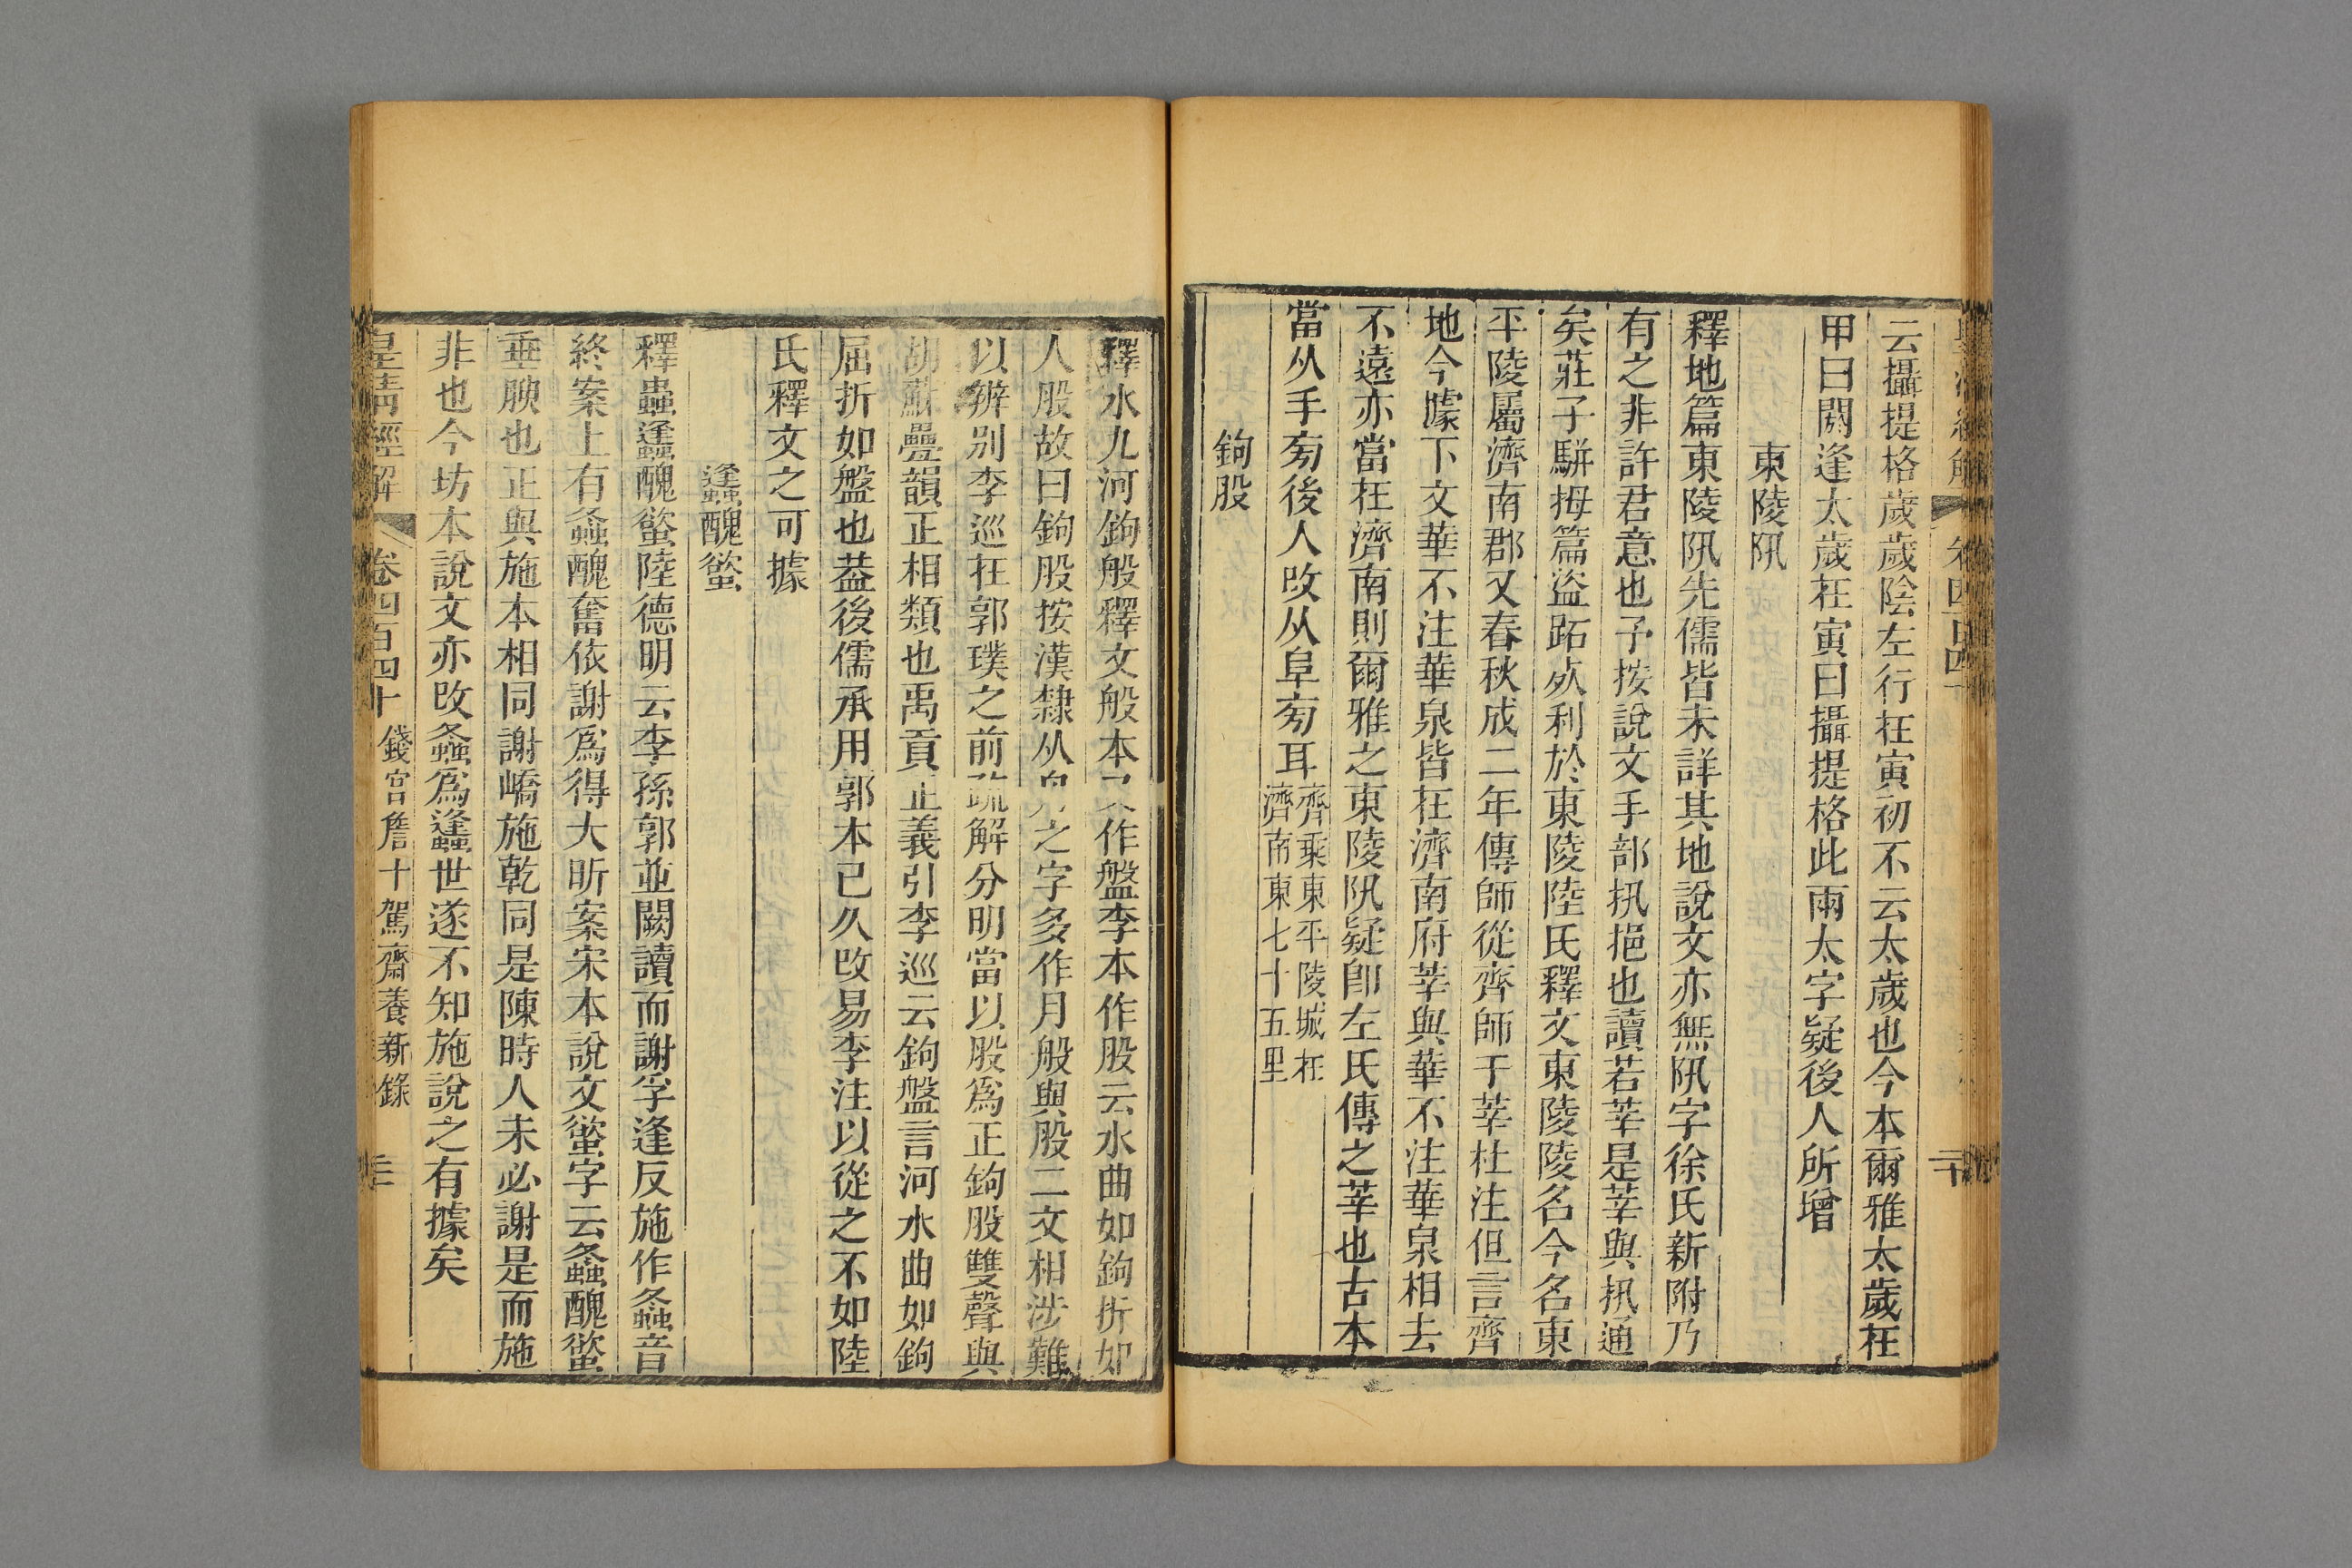 云攝提格歲歲陰左行在寅初不云太歲也今本爾雅太歲在
甲曰閼逢太歲在寅曰攝提格此兩太字疑後人所增
東陵阠
釋地篇東陵阠先儒皆未詳其地說文亦無阠字徐氏新附乃
有之非許君意也予按說文手部扟挹也讀若莘是莘與扟通
矣莊子駢拇篇盜跖死利於東陵陸氏釋文東陵陵名今名東
平陵屬濟南郡又春秋成二年傳師從齊師于莘杜注但言齊
地今據下文華不注華泉皆在濟南府莘與華不注華泉相去
不遠亦當在濟南則爾雅之東陵阠疑卽左氏傳之莘也古本
當从手旁後人改从阜旁耳齊乘東平陵城在濟南東七十五里
鉤股
釋水九河鉤般釋文般本又作盤李本作股云水曲如鉤折如
人股故曰鉤股按漢隸从舟之字多作月般與股二文相涉難
以辨别李巡在郭璞之前疏解分明當以股爲正鉤股雙聲與
胡蘇疊韻正相類也禹貢正義引李巡云鉤盤言河水曲如鉤
屈折如盤也葢後儒承用郭本已久改易李注以從之不如陸
氏釋文之可據
蠭醜螸
釋蟲蠭醜螸陸德明云李孫郭並闕讀而謝孚逢反施作螽音
終案上有螽醜奮依謝爲得大昕案宋本說文螸字云螽醜螸
垂腴也正與施本相同謝嶠施乾同是陳時人未必謝是而施
非也今坊本說文亦改螽爲蠭世遂不知施說之有據矣
皇淸經解 卷四百四十 錢宮詹十駕齋養新錄